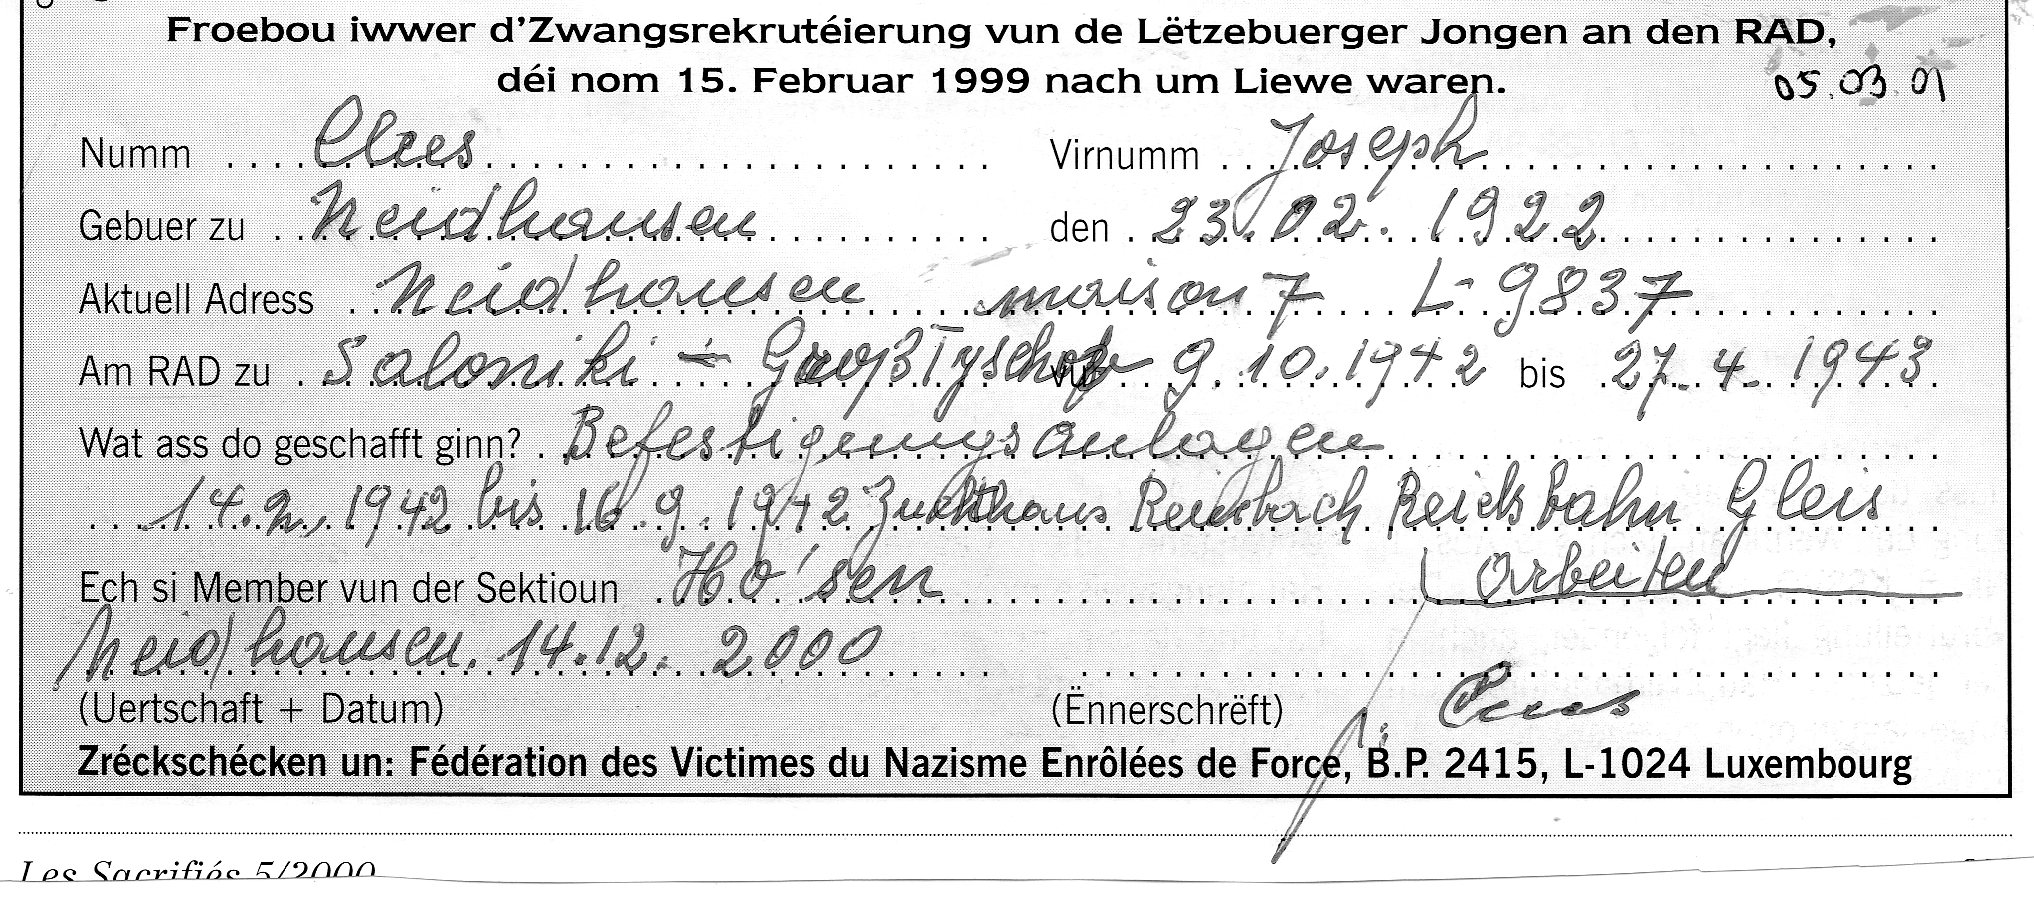 Froebou iwwer d'Zwangsrekrutéierung vun de Lëtzebuerger Jongen an den RAD,
déi nom 15. Februar 1999 nach um Liewe waren.
05.03.01
Numm Clees Virnumm Joseph
Gebuer zu Neidhausen den 23.02.1922
Aktuell Adress Neidhausen maison 7 L-9837
Am RAD zu Saloniki - vun 9.10.1942 bis 27.4.1943
Wat ass do geschafft ginn? Befestigungsanlagen
14.2.1942 bis 16.9.1942 Zuchthaus Reinbach Reichsbahn Gleis
arbeiten
Ech si Member vun der Sektioun Ho'sen
Neidhausen. 14.12. 2000
(Uertschaft + Datum) (Ënnerschrëft) J. Clees
Zréckschécken un: Fédération des Victimes du Nazisme Enrôlées de Force, B.P. 2415, L-1024 Luxembourg
Les Sacrifiés 5/2000